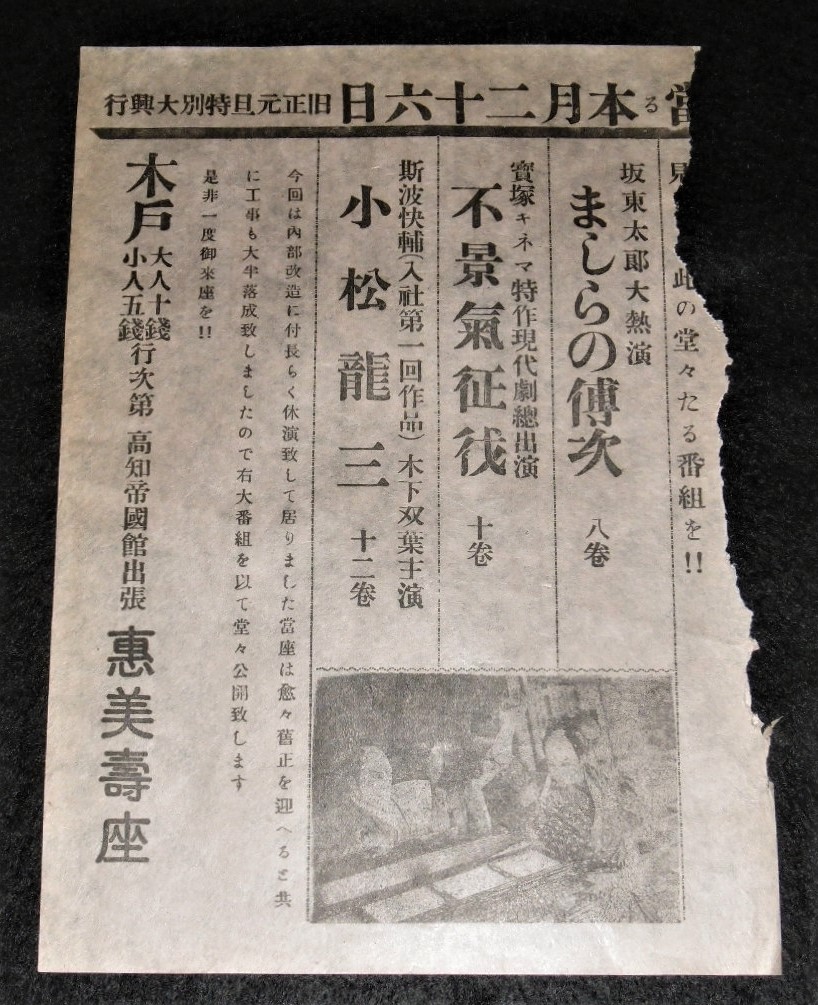 當る本月二十六日 旧正元旦特別大興行
此の堂々たる番組を!!
坂東太郎大熱演
ましらの傳次 八卷
寶塚キネマ特作現代劇總出演
不景氣征伐 十卷
斯波快輔(入社第一回作品)木下双葉主演
小松龍三 十二卷
今回は內部改造に付長らく休演致して居りました當座は愈々舊正を迎へると共
に工事も大半落成致しましたので右大番組を以て堂々公開致します
是非一度御來座を!!
木戶 大人十錢 小人五錢 行次第 高知帝國館出張 惠美壽座